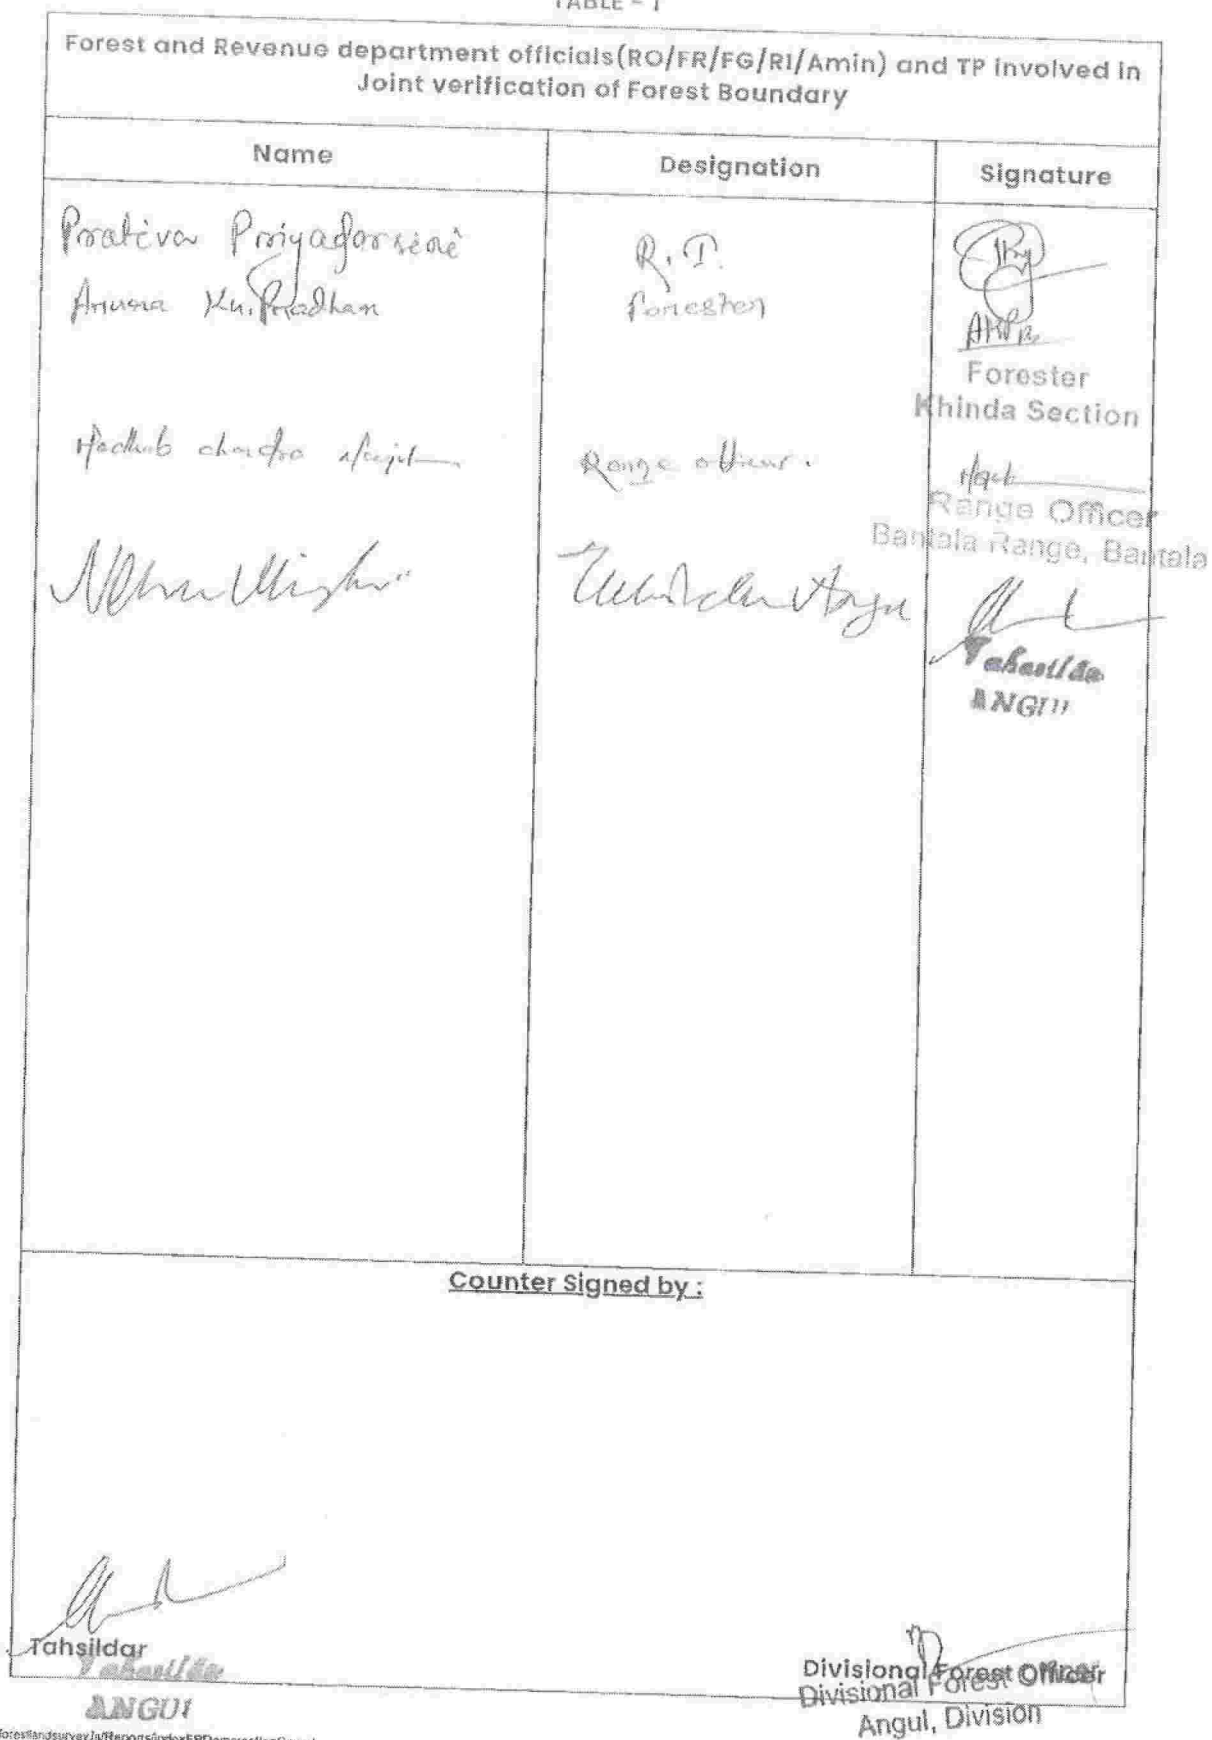 TABLE - 1
Forest and Revenue department officials(RO/FR/FG/RI/Amin) and TP involved in
Joint verification of Forest Boundary
Name Designation Signature
Prativa Priyadarsini R.I.
Ku. Pradhan Forester
Forester
Khinda Section
Madhab chandra Range officer.
Range Officer
Bantala Range, Bantala
Tahasilda
ANGU
Counter Signed by :
Tahsildar
Tahasilda
ANGU
Divisional Forest Officer
Divisional Forest Officer
Angul, Division